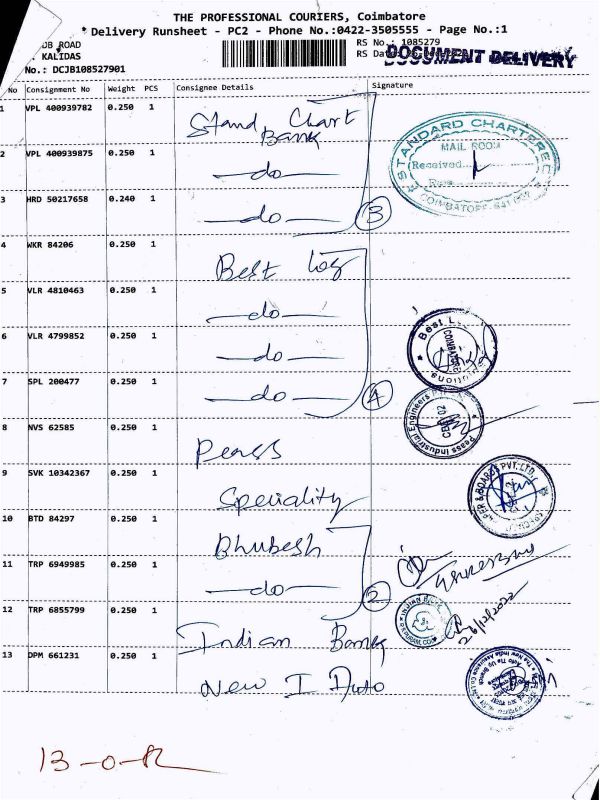 THE PROFESSIONAL COURIERS, Coimbatore
Delivery Runsheet - PC2 - Phone No.:0422-3505555 - Page No.:1
DB ROAD
KALIDAS
No.: DCJB108527901
RS No.: 1085279
RS Date:
DOCUMENT DELIVERY
No Consignment No Weight PCS Consignee Details Signature
1 VPL 400939782 0.250 1 Stand Chart Bank
2 VPL 400939875 0.250 1 —do—
3 HRD 50217658 0.240 1 —do— 3
STANDARD CHARTERED
MAIL ROOM
Received
COIMBATORE
4 WKR 84206 0.250 1 Best Log
5 VLR 4810463 0.250 1 —do—
6 VLR 4799852 0.250 1 —do—
7 SPL 200477 0.250 1 —do— 4
8 NVS 62585 0.250 1 Peass
Peass Industrial Engineers
9 SVK 10342367 0.250 1 Speciality
10 BTD 84297 0.250 1 Bhubesh
11 TRP 6949985 0.250 1 —do— 2
12 TRP 6855799 0.250 1 Indian Bank
26/12/2022
13 DPM 661231 0.250 1 New I Auto
13-0-R